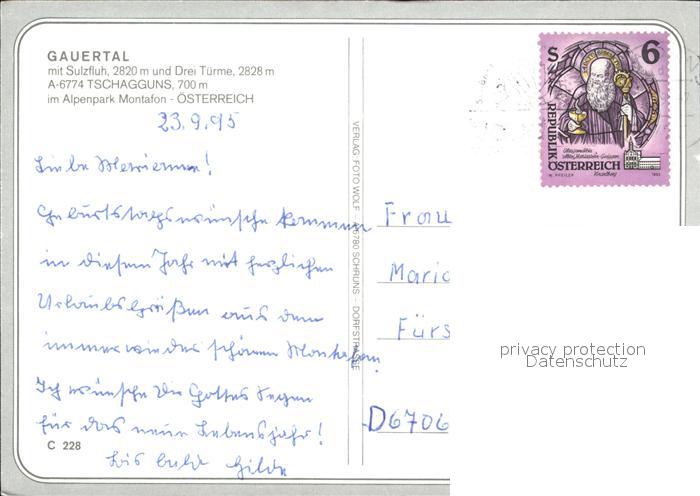 GAUERTAL
mit Sulzfluh, 2820 m und Drei Türme, 2828 m
A-6774 TSCHAGGUNS, 700 m
im Alpenpark Montafon - ÖSTERREICH
23.9.95
Liebe
Geburtstagswünsche kommen
in diesem Jahr mit herzlichen
Urlaubsgrüßen aus dem
immer wieder schönen Montafon.
Ich wünsche Dir Gottes Segen
für das neue Lebensjahr!
Bis bald Hilde
C 228
VERLAG FOTO WOLF - A-6780 SCHRUNS - DORFSTRASSE
S 6
REPUBLIK
ÖSTERREICH
W. PFEILER
Frau
Maria
Fürs
D6706
privacy protection
Datenschutz